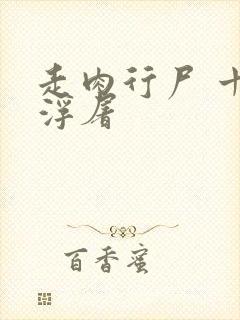 走肉行尸 十
浮屠
百香蜜